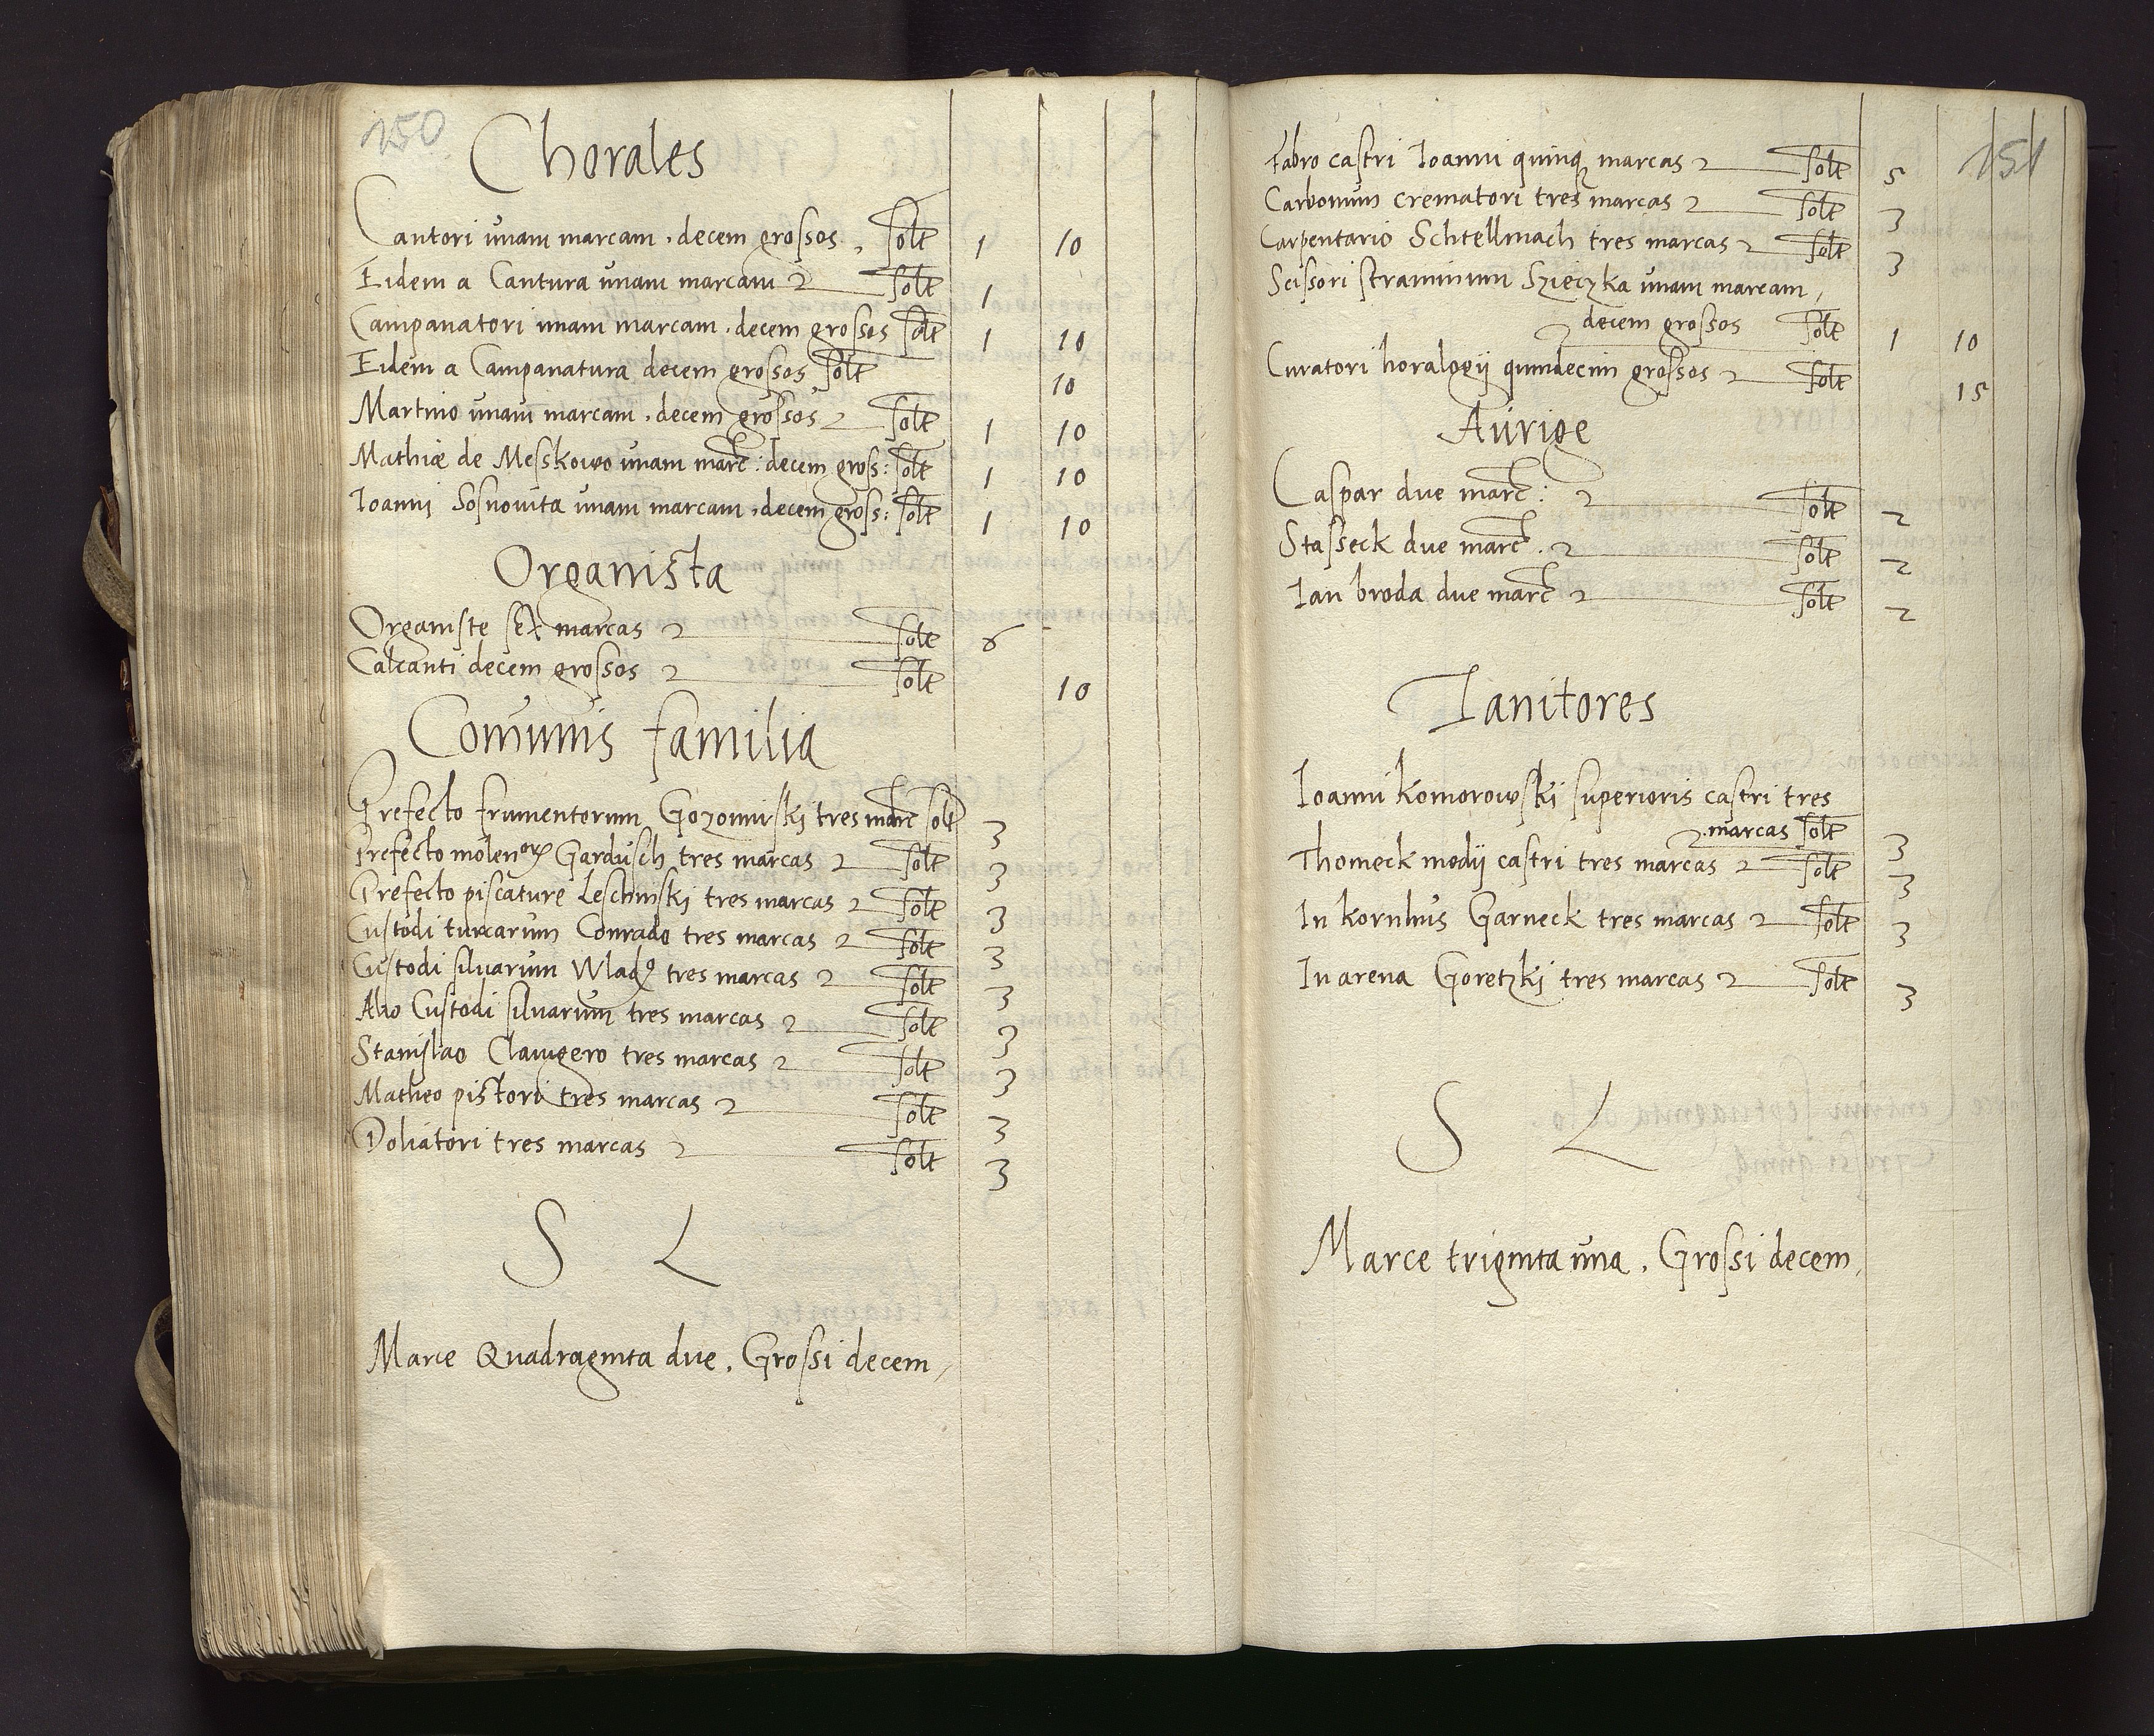 150
Chorales
Cantori unam marcam, decem grossos, solt 1 10
Eidem a Cantura unam marcam solt 1
Campanatori unam marcam, decem grossos solt 1 10
Eidem a Campanatura decem grossos solt 10
Martino unam marcam, decem grossos solt 1 10
Mathiæ de Messkowo unam marc: decem gross: solt 1 10
Ioanni Sosnovita unam marcam, decem gross: solt 1 10
Organista
Organiste sex marcas solt 6
Calcanti decem grossos solt 10
Comunis familia
Prefecto frumentorum Gozomirskj tres marc solt 3
Prefecto molen Gardusch tres marcas solt 3
Prefecto piscature Leschinskj tres marcas solt 3
Custodi turcarum Conrado tres marcas solt 3
Custodi silvarum Wlad tres marcas solt 3
Alio Custodi silvarum tres marcas solt 3
Stanislao Clavigero tres marcas solt 3
Matheo pistori tres marcas solt 3
Doliatori tres marcas solt 3
S L
Marce Quadraginta due. Grossi decem,
151
Fabro castri Ioanni quinq marcas solt 5
Carbonum crematori tres marcas solt 3
Carpentario Schtellmach tres marcas solt 3
Scissori straminum Szieczka unam marcam,
decem grossos solt 1 10
Curatori horalogij quindecim grossos solt 15
Aurige
Caspar due marc: solt 2
Stasseck due marc. solt 2
Ian broda due marc solt 2
Ianitores
Ioanni Komorowskj superioris castri tres
marcas solt 3
Thomeck medij castri tres marcas solt 3
In kornhus Garneck tres marcas solt 3
In arena Goretzkj tres marcas solt 3
S L
Marce triginta una. Grossi decem,